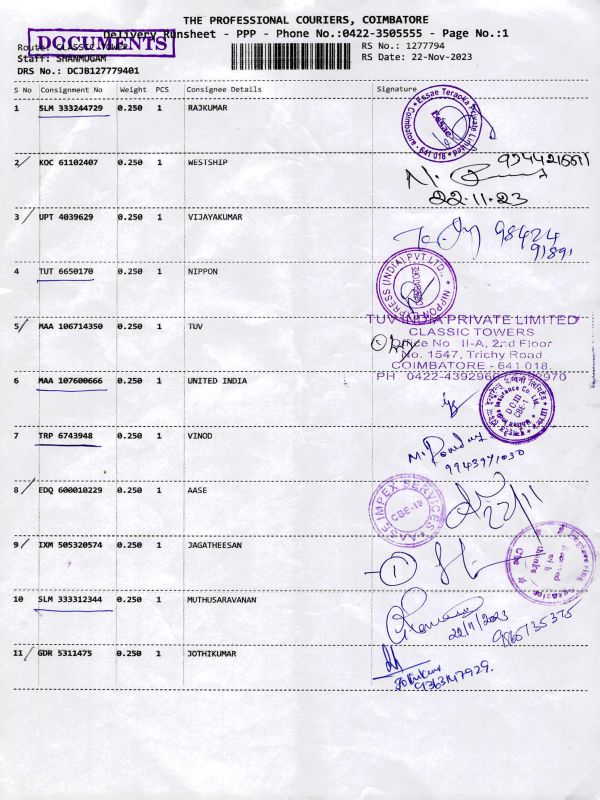 THE PROFESSIONAL COURIERS, COIMBATORE
Delivery Runsheet - PPP - Phone No.:0422-3505555 - Page No.:1
DOCUMENTS
Route: CLASSIC TOWER
RS No.: 1277794
Staff: SHANMUGAM
RS Date: 22-Nov-2023
DRS No.: DCJB127779401
S No Consignment No Weight PCS Consignee Details Signature
1 SLM 333244729 0.250 1 RAJKUMAR
Essae Teraoka Private Limited
Coimbatore - 641 018
Essae
2 KOC 61102407 0.250 1 WESTSHIP
22.11.23
3 UPT 4039629 0.250 1 VIJAYAKUMAR
98424
91891
4 TUT 6650170 0.250 1 NIPPON
NIPPON EXPRESS (INDIA) PVT LTD.,
COIMBATORE
5 MAA 106714350 0.250 1 TUV
TUV INDIA PRIVATE LIMITED
CLASSIC TOWERS
Office No II-A, 2nd Floor
No. 1547, Trichy Road
COIMBATORE - 641 018.
6 MAA 107600666 0.250 1 UNITED INDIA
D O III
CBE-1
7 TRP 6743948 0.250 1 VINOD
8 EDQ 600010229 0.250 1 AASE
AASE IMPEX SERVICES
CBE-18
22/11
9 IXM 505320574 0.250 1 JAGATHEESAN
1
10 SLM 333312344 0.250 1 MUTHUSARAVANAN
22/11/2023
11 GDR 5311475 0.250 1 JOTHIKUMAR
9363147929.